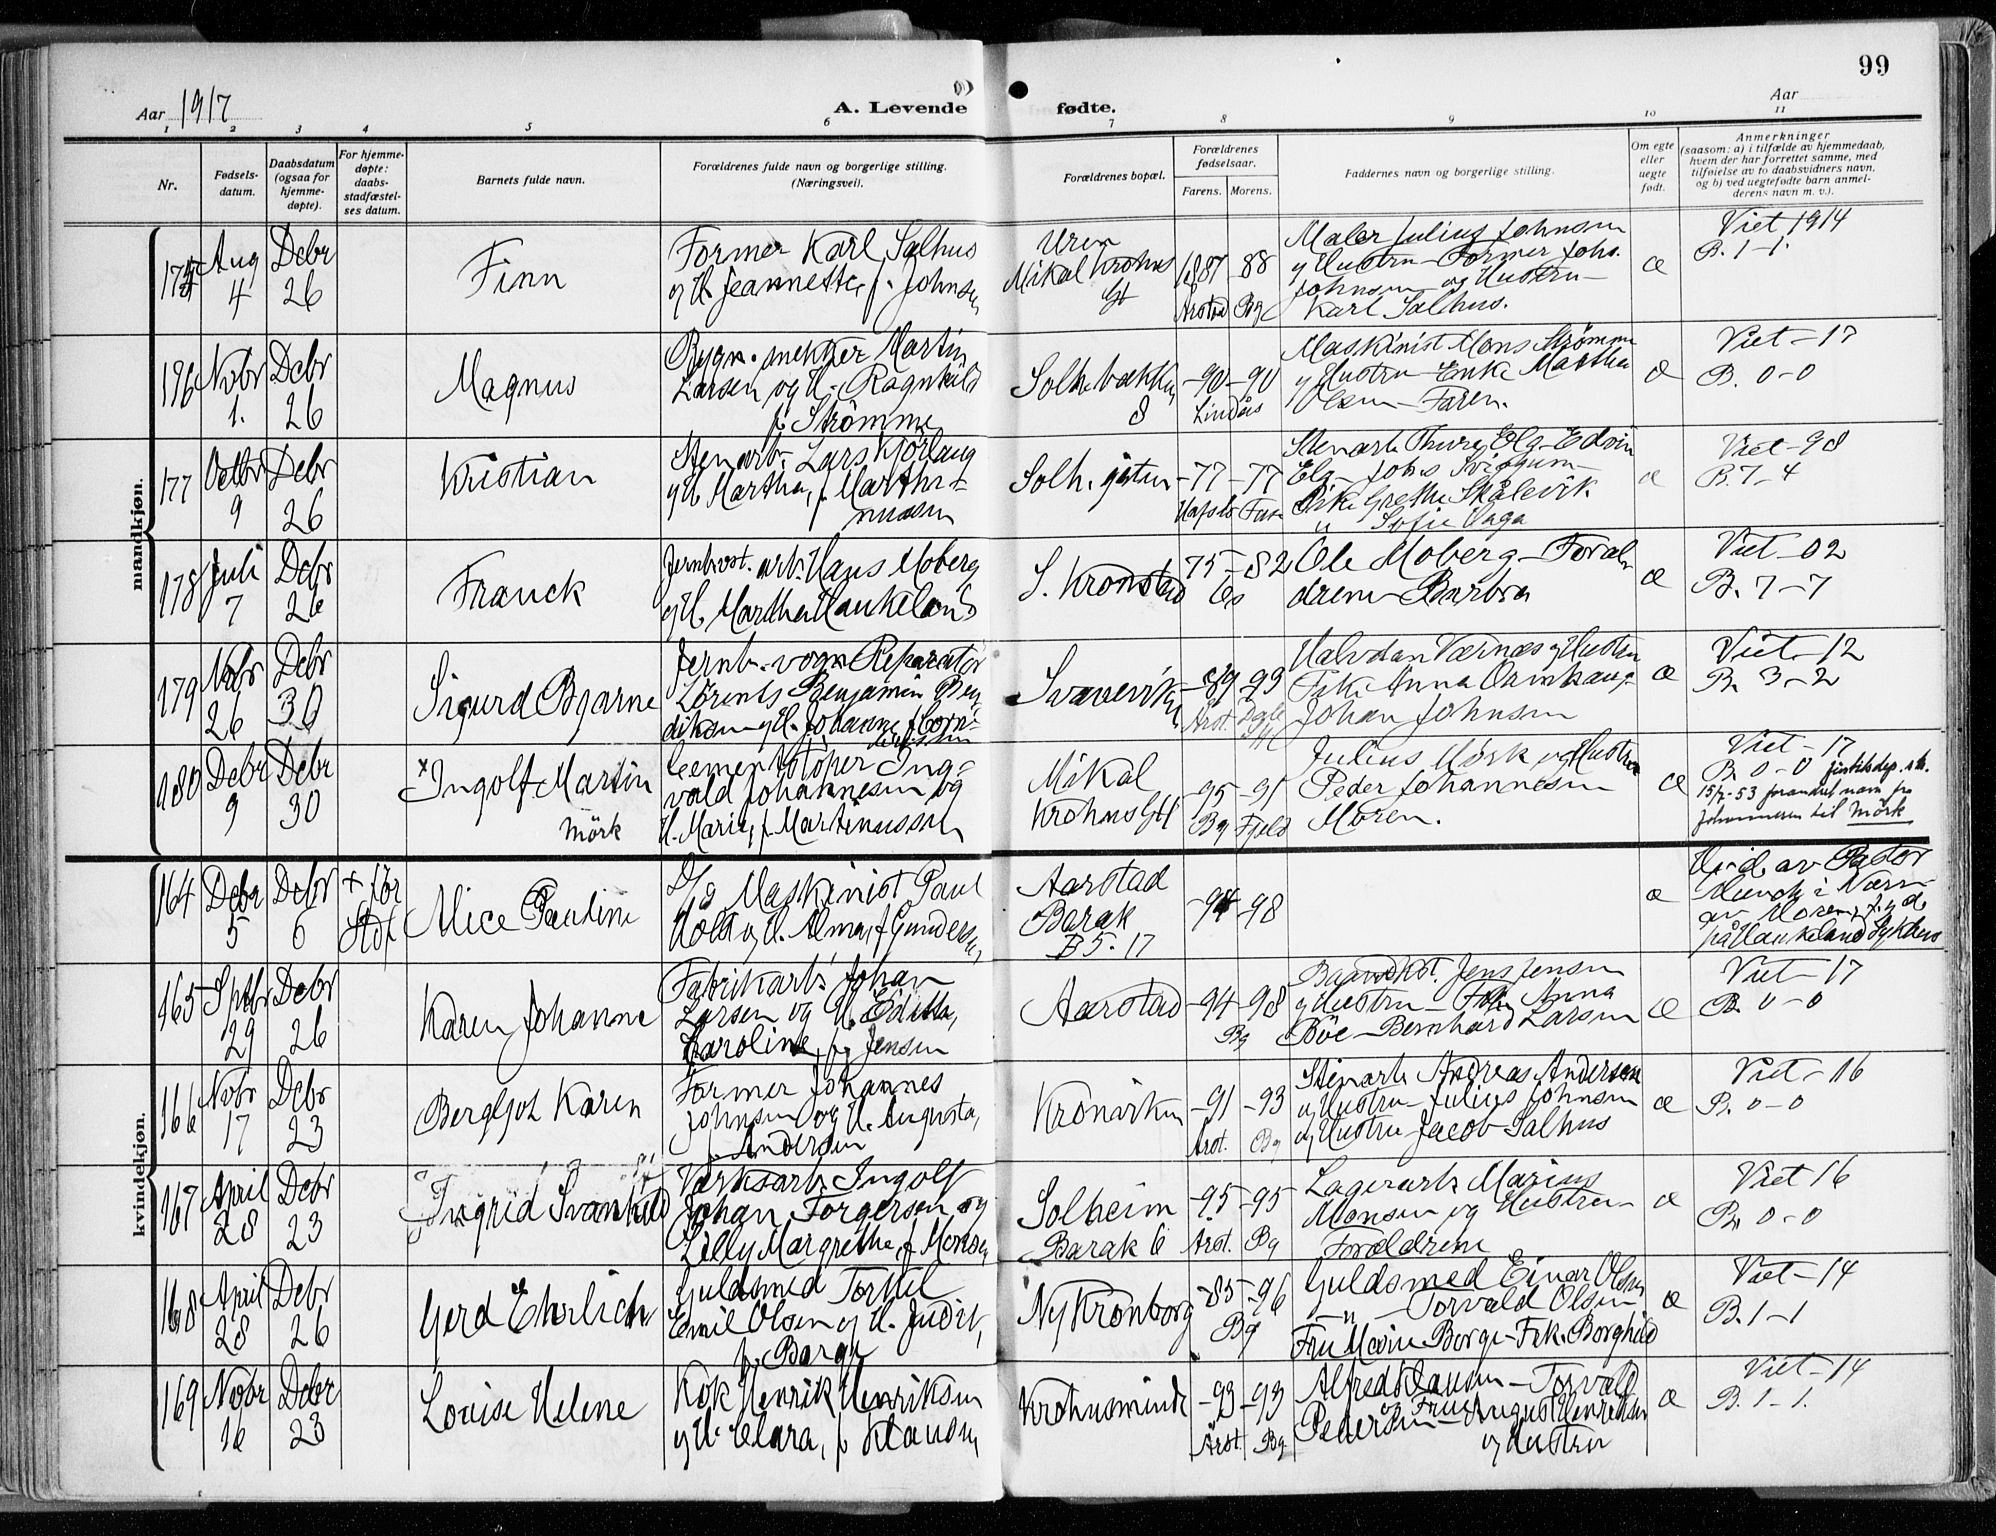 99
Aar 1917
A. Levende fødte.
Aar
1 2 3 4 5 6 7 8 9 10 11
Nr.
Fødsels-
datum.
Daabsdatum
(ogsaa for
hjemme-
døpte).
For hjemme-
døpte:
daabs-
stadfæstel-
ses datum.
Barnets fulde navn.
Forældrenes fulde navn og borgerlige stilling.
(Næringsvei).
Forældrenes bopæl.
Forældrenes
fødselsaar.
Farens. Morens.
Faddernes navn og borgerlige stilling.
Om egte
eller
uegte
født.
Anmerkninger
(saasom: a) i tilfælde av hjemmedaab,
hvem der har forrettet samme, med
tilføielse av to daabsvidners navn,
og b) ved uegtefødte barn anmel-
derens navn m. v.).
mandkjøn.
175
Aug
4
Debr
26
Finn
Former Karl Salhus
og H. Jeannette, f. Johnsen
Uren
Mikal Krohns
Gt
1887 -88
Arstad Bg
Maler Julius Johnsen
og Hustru - Former Johs.
Johnsen og Hustru -
Karl Salhus.
æ
Viet 1914
B. 1-1
176
Novbr
1.
Debr
26
Magnus
Martin
Larsen og H. Ragnhild
f. Strømme
8
-90 -90
Lindås
Maskinist Mons Strømme
og Hustru - Enke Martha
Olsen - Faren.
æ
Viet - 17
B. 0-0
177
Octbr
9
Debr
26
Kristian
Stenarb. Lars
og H. Martha, f. Marthi-
nussen
Solh. gaten
-77 -77
Hafslo
Stenarb. Thure Elg - Edvin
Elg - Johs
Grethe Skålevik
" Sofie
æ
Viet - 98
B. 7-4
178
Juli
7
Debr
26
Franck
arb. Hans Moberg
og H. Martha Haukeland
S. Kronstad
75 -82
Os
Ole Moberg - Foræl-
drene - Barbra
æ
Viet - 02
B. 7-7
179
Novbr
26
Debr
30
Sigurd Bjarne
Jernb. vogn Reparatør
Lorents Benjamin Ben-
diksen og H. Johanne, f. Corn-
Svaneviken
-89 -93
Arst.
Halvdan Værnæs og Hustru
Frk. Anna Ormhaug -
Johan Johnsen
æ
Viet - 12
B. 3-2
180
Debr
9
Debr
30
x Ingolf Martin
Mörk
Cementstøper Ing-
vald Johannesen og
H. Marie, f. Martinussen
Mikal
Krohns Gt
-95 -91
Bg Fjeld
Julius Mörk og Hustru
Peder Johannesen
Moren.
æ
Viet - 17
B. 0-0 Justitsdep. sk.
15/7-53 forandret navn fra
Johannesen til Mörk
kvindekjøn.
164
Debr
5
Debr
6
+ før
Stdf
Alice Pauline
D/s Maskinist Paul
Holt og H. Alma, f. Gundersen
Aarstad
Barak
B 5. 17
-94 -98
æ
av Pastor
Munch i Nærv-
av Moren,
på Haukeland Sykehus
165
Sptbr
29
Debr
26
Karen Johanne
Fabrikarb. Johan
Larsen og H. Editha,
Karoline, f. Jensen
Aarstad
-94 -98
Bg
Jens Jensen
og Hustru - Frk. Anna
Böe - Bernhard Larsen
æ
Viet - 17
B. 0-0
166
Novbr
17
Debr
23
Bergljot Karen
Former Johannes
Johnsen og H. Augusta,
f. Andersen
Kronviken
-91 -93
Arst. Bg
Stenarb. Andreas Andersen
og Hustru - Julius Johnsen
og Hustru Jacob Salhus
æ
Viet - 16
B. 0-0
167
April
28
Debr
23
Ingrid Svanhild
Værksarb. Ingolf
Johan Torgersen og
Lilly Margrethe, f. Monsen
Solheim
Barak 6
-95 -95
Arst. Bg
Lagerarb. Marius
Monsen og Hustru -
Forældrene
æ
Viet 16
B. 0-0
168
April
28
Debr
26
Gerd Ehrlich
Guldsmed Torkel
Emil Olsen og H. Judit,
f. Barge
Ny Kronborg
-85 -96
Bg
Guldsmed Einar Olsen
-"- Torvald Olsen
Fru Marie Borge - Frk. Borghild
æ
Viet - 14
B. 1-1
169
Novbr
16
Debr
23
Louise Helene
Kok Henrik Henriksen
og H. Clara, f. Klausen
Krohnsminde
-93 -93
Arst. Bg
Alfred Klausen - Torvald
Pedersen og Frue - August Henriksen
og Hustru
æ
Viet - 14
B. 1-1.